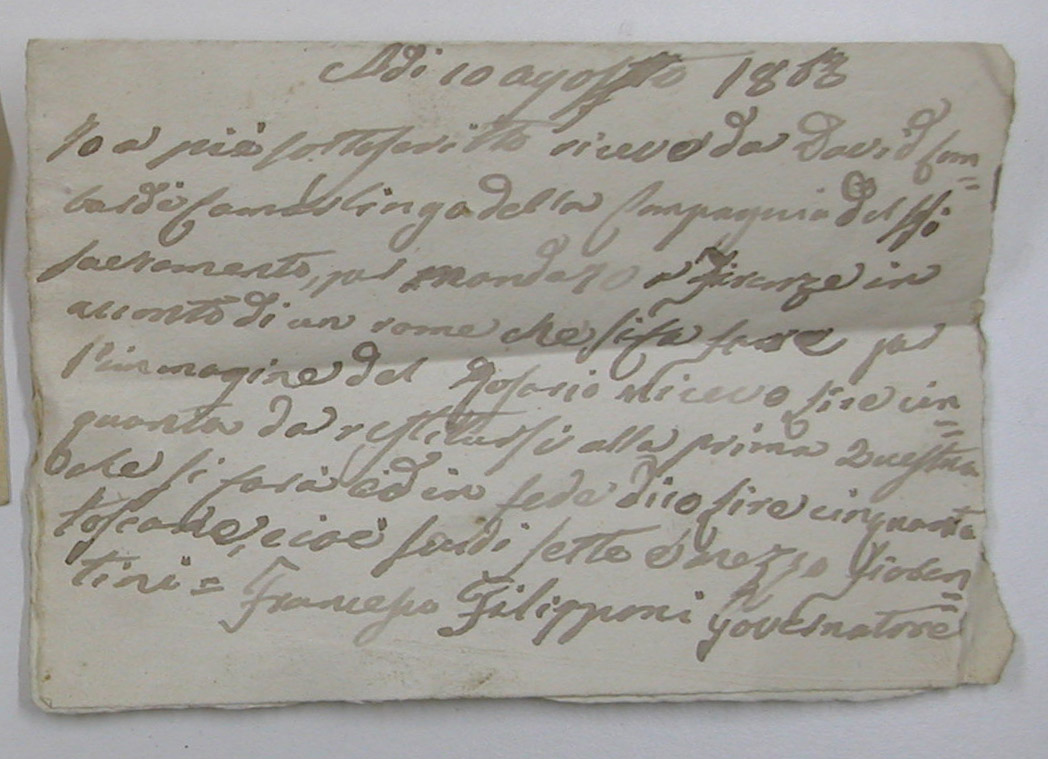 Adi 10 agosto 1868
Io a piè sottoscritto ricevo da David Lom=
bardi Camarlingo della Compagnia del SSo
Sacramento, per mandato a Firenze in
acconto di un rame che si fa fare per
l'immagine del Rosario ricevo lire cin=
quanta da restituirsi alla prima Questua
che si farà ed in fede dico lire cinquanta
toscane, cioè scudi sette e mezzo fioren=
tini = Francesco Filipponi Governatore